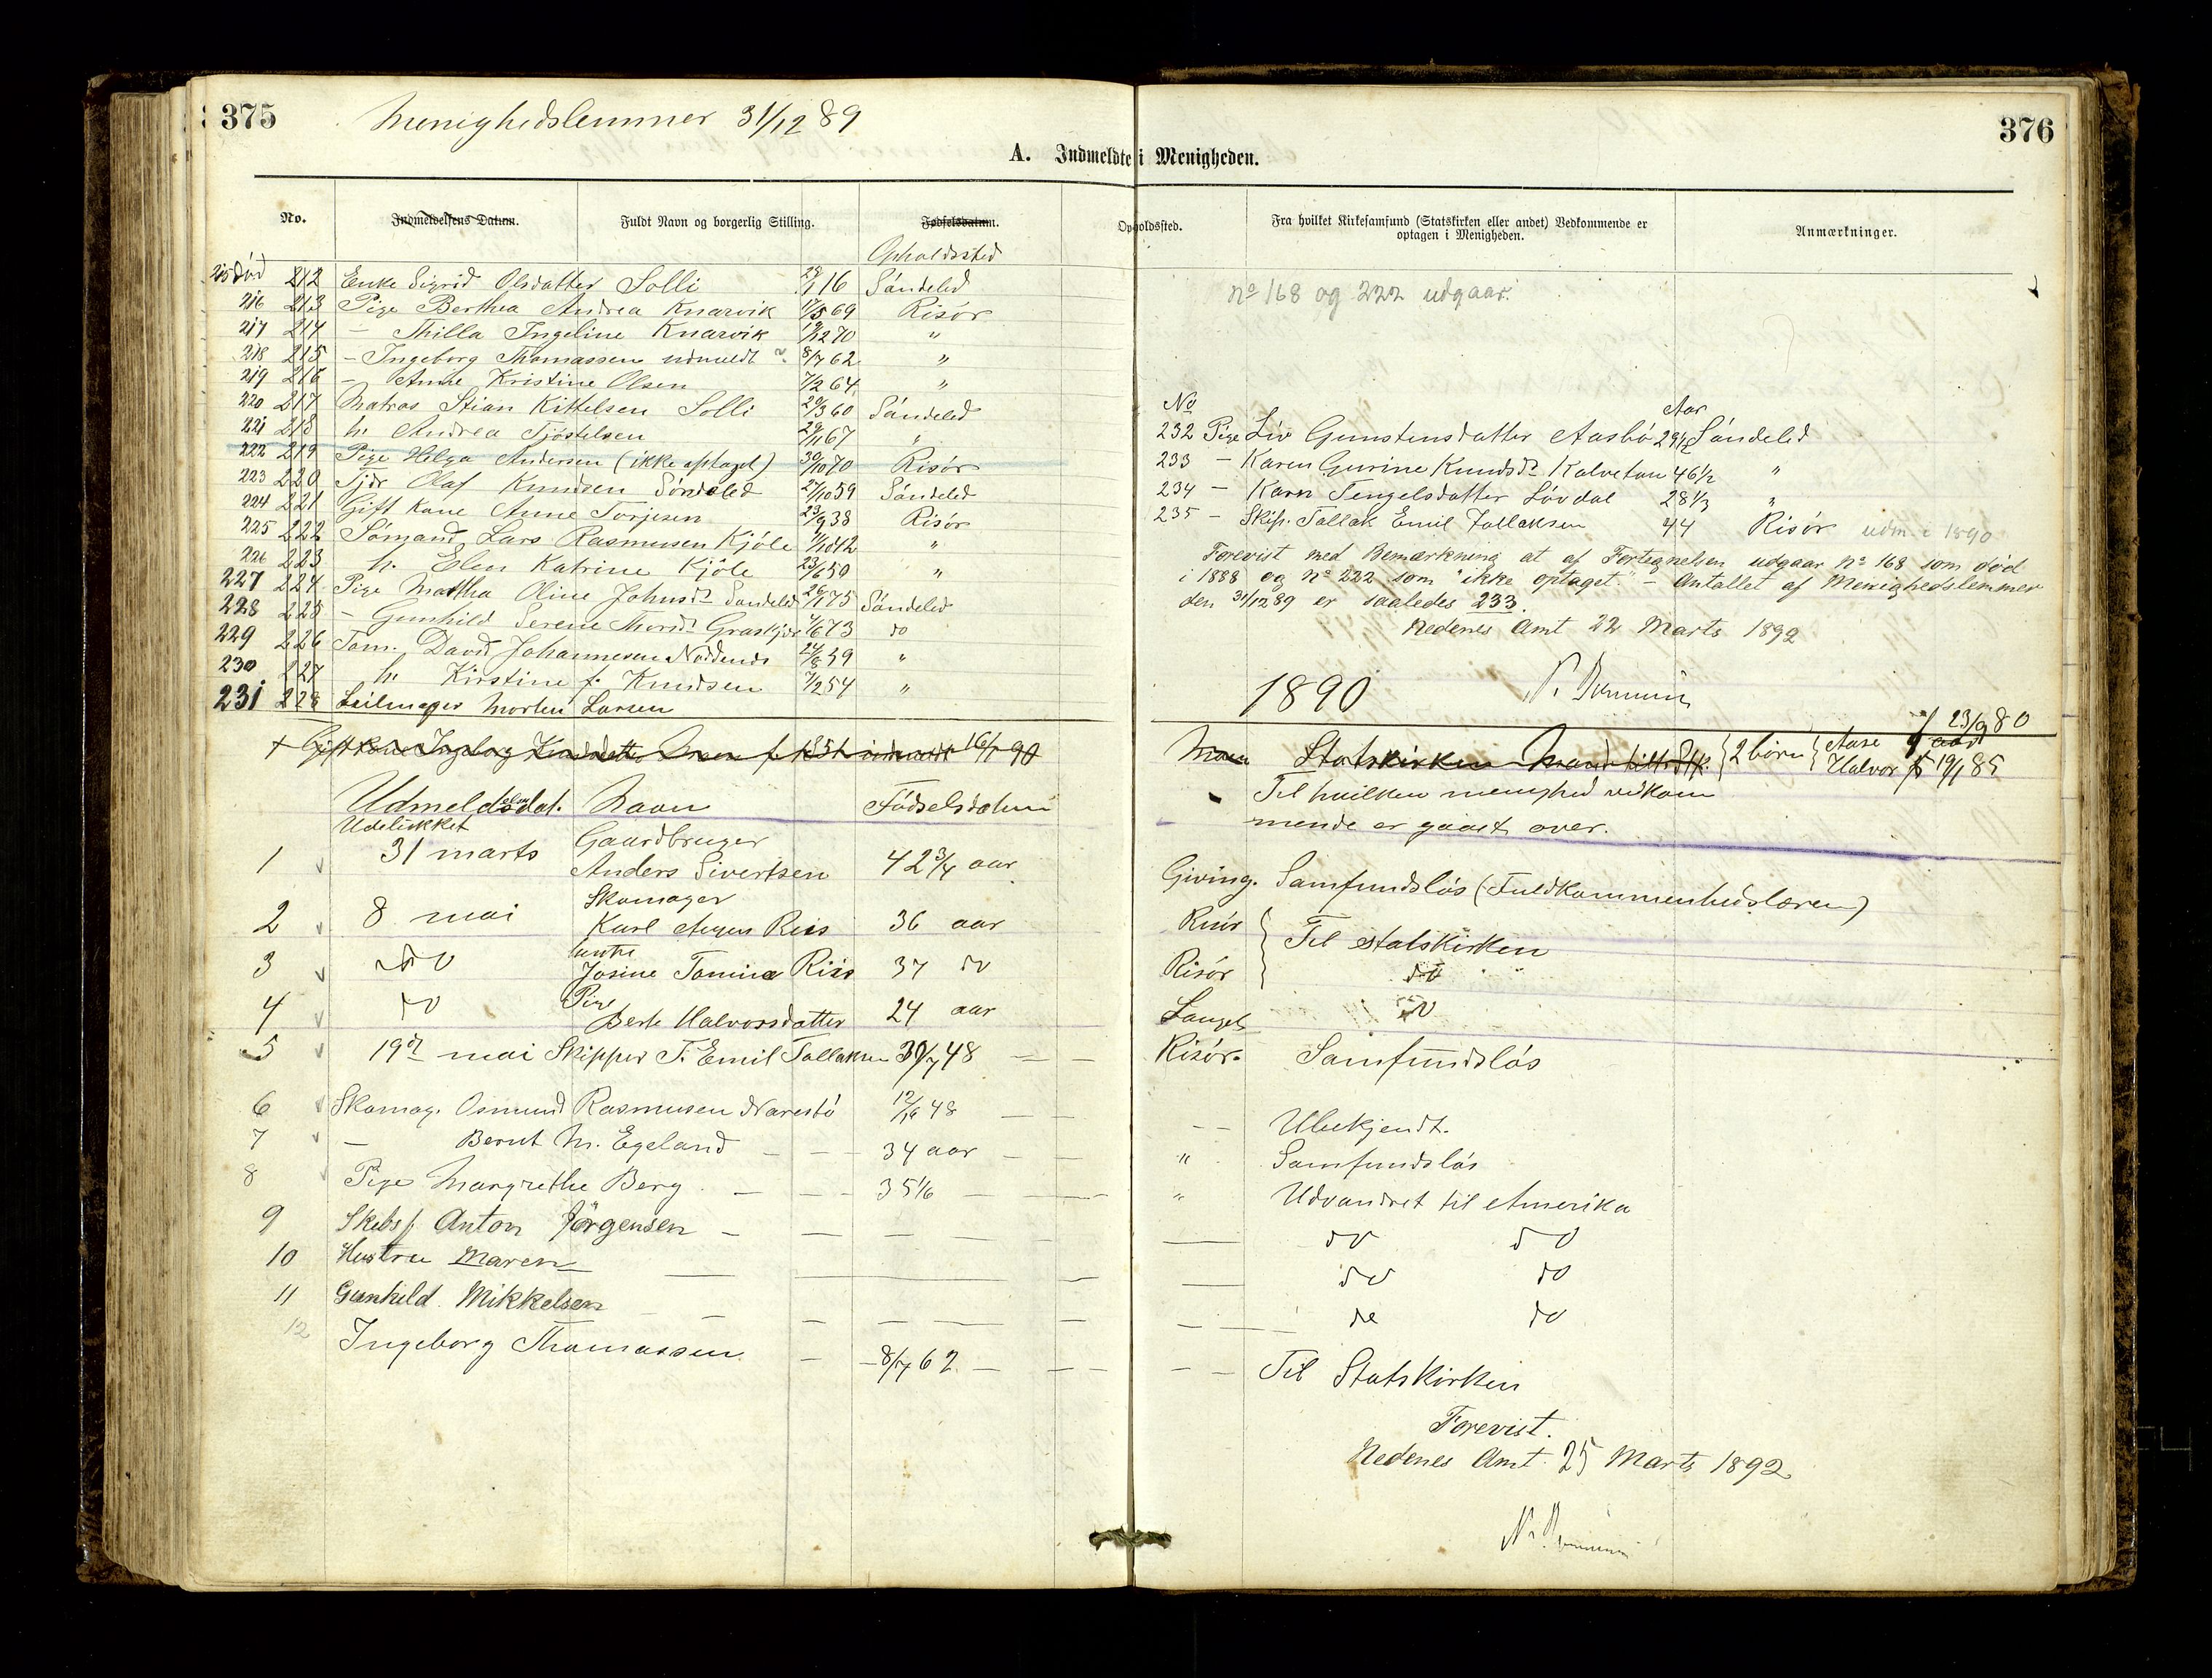 375
Menighedslemmer 31/12 89
376
A. Indmeldte i Menigheden.
No.
Indmeldelsens Datum.
Fuldt Navn og borgerlig Stilling.
Fødselsdatum.
Opholdssted.
Fra hvilket Kirkesamfund (Statskirken eller andet) Vedkommende er
optagen i Menigheden.
Anmærkninger.
Opholdssted
215 død 212 Enke Sigrid Olsdatter Solli 16 Søndeled
216 213 Pige Berthea Andrea Knarvik 17/5 69 Risør
217 214 — Thilla Ingeline Knarvik 19/12 70 "
218 215 — Ingeborg Thomassen udmeldt 8/7 62 "
219 216 — Anne Kristine Olsen 7/2 64 "
220 217 Matros Stian Kittelsen Solli 20/3 60 Søndeled
221 218 h. Andrea Tjøstelsen 29/11 67 "
222 219 Pige Helga Andersen (ikke optaget) 30/10 70 Risør
223 220 Tjdr Olaf Knudsen Søndeled 27/10 59 Søndeled
224 221 Gift Kone Anne Torjesen 23/9 38 Risør
225 222 Sømand Lars Rasmusen Kjøle "
226 223 h. Elen Katrine Kjøle 23/6 50 "
227 224 Pige Martha Oline Johnsdr Søndeled 26/1 75 Søndeled
228 225 — Gunhild Serene 73 do
229 226 Tøm. David Johannesen 59 "
230 227 h. Kirstine f. Knudsen 7/2 54 "
231 228 Seilmager Morten Larsen
no 168 og 222 udgaar.
No Aar
232 Pige Liv Gunstensdatter Aasbø 29 1/2 Søndeled
233 — Karen Gurine Knudsdr Kalvetan 46 1/2 "
234 — Karn Tengelsdatter Løvdal 28 1/3 "
235 — Skip. Tallak Emil Tallaksen 44 Risør udm. i 1890
Forevist med Bemærkning at af Fortegnelsen udgaar no 168 som død
i 1888 og no 222 som "ikke optaget" — Antallet af Menighedslemmer
den 31/12 89 er saaledes 233.
Nedenes Amt 22 Marts 1892
1890
+ Gift Kone Ingeborg indmeldt 16/1 90
Statskirken 2 børn Aase f 23/9 80
Halvor f 19/1 85
Udmeldelsdat. Navn Fødselsdatum
Til hvilken menighed vedkom
mende er gaaet over.
Udelukket Gaardbruger
1 31 marts Anders Sivertsen 42 3/4 aar Giving. Samfundsløs (Fuldkommenhedslæren)
Skomager
2 8 mai Karl Riis 36 aar Risør Til statskirken
hustru
3 do Josine Tomine Riis 37 do Risør do
Pige
4 do Berte Halvorsdatter 24 aar do
5 19de mai Skipper T. Emil Tallaksen 30/7 48 — — Risør. Samfundsløs
6 Skomag. Osmund Rasmusen Narestø 48 — — Ubekjendt.
7 — Bernt M. Egeland — — 34 aar — — " Samfundsløs
8 Pige Margrethe Berg — — 35 1/6 — — " Udvandret til Amerika
9 Skibsf. Anton Jørgensen — — — — do do
10 Hustru Maren — — — do do
11 Gunhild Mikkelsen — — — — do do
12 Ingeborg Thomassen — 8/7 62 — — — — Til Statskirken
Forevist.
Nedenes Amt 25 Marts 1892